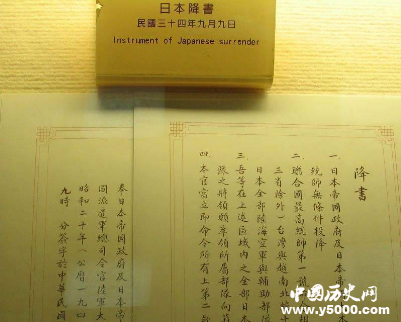 日本降書
民國三十四年九月九日
Instrument of Japanese surrender
降書
一、日本帝國政府及日本帝
統帥無條件投降
二、聯合國最高統帥第一號
三省除外）台灣與越南北
日本全部陸海空軍與輔助部
三、吾等在上述區域內之全部日本
源之將領願率領所屬部隊向
四、本官當立即命令所有上第二
奉日本帝國政府及日本帝
國派遣軍總司令官陸軍大
昭和二十年（公曆一九四
九時 分簽字於中華民國
中国历史网
www.y5000.com